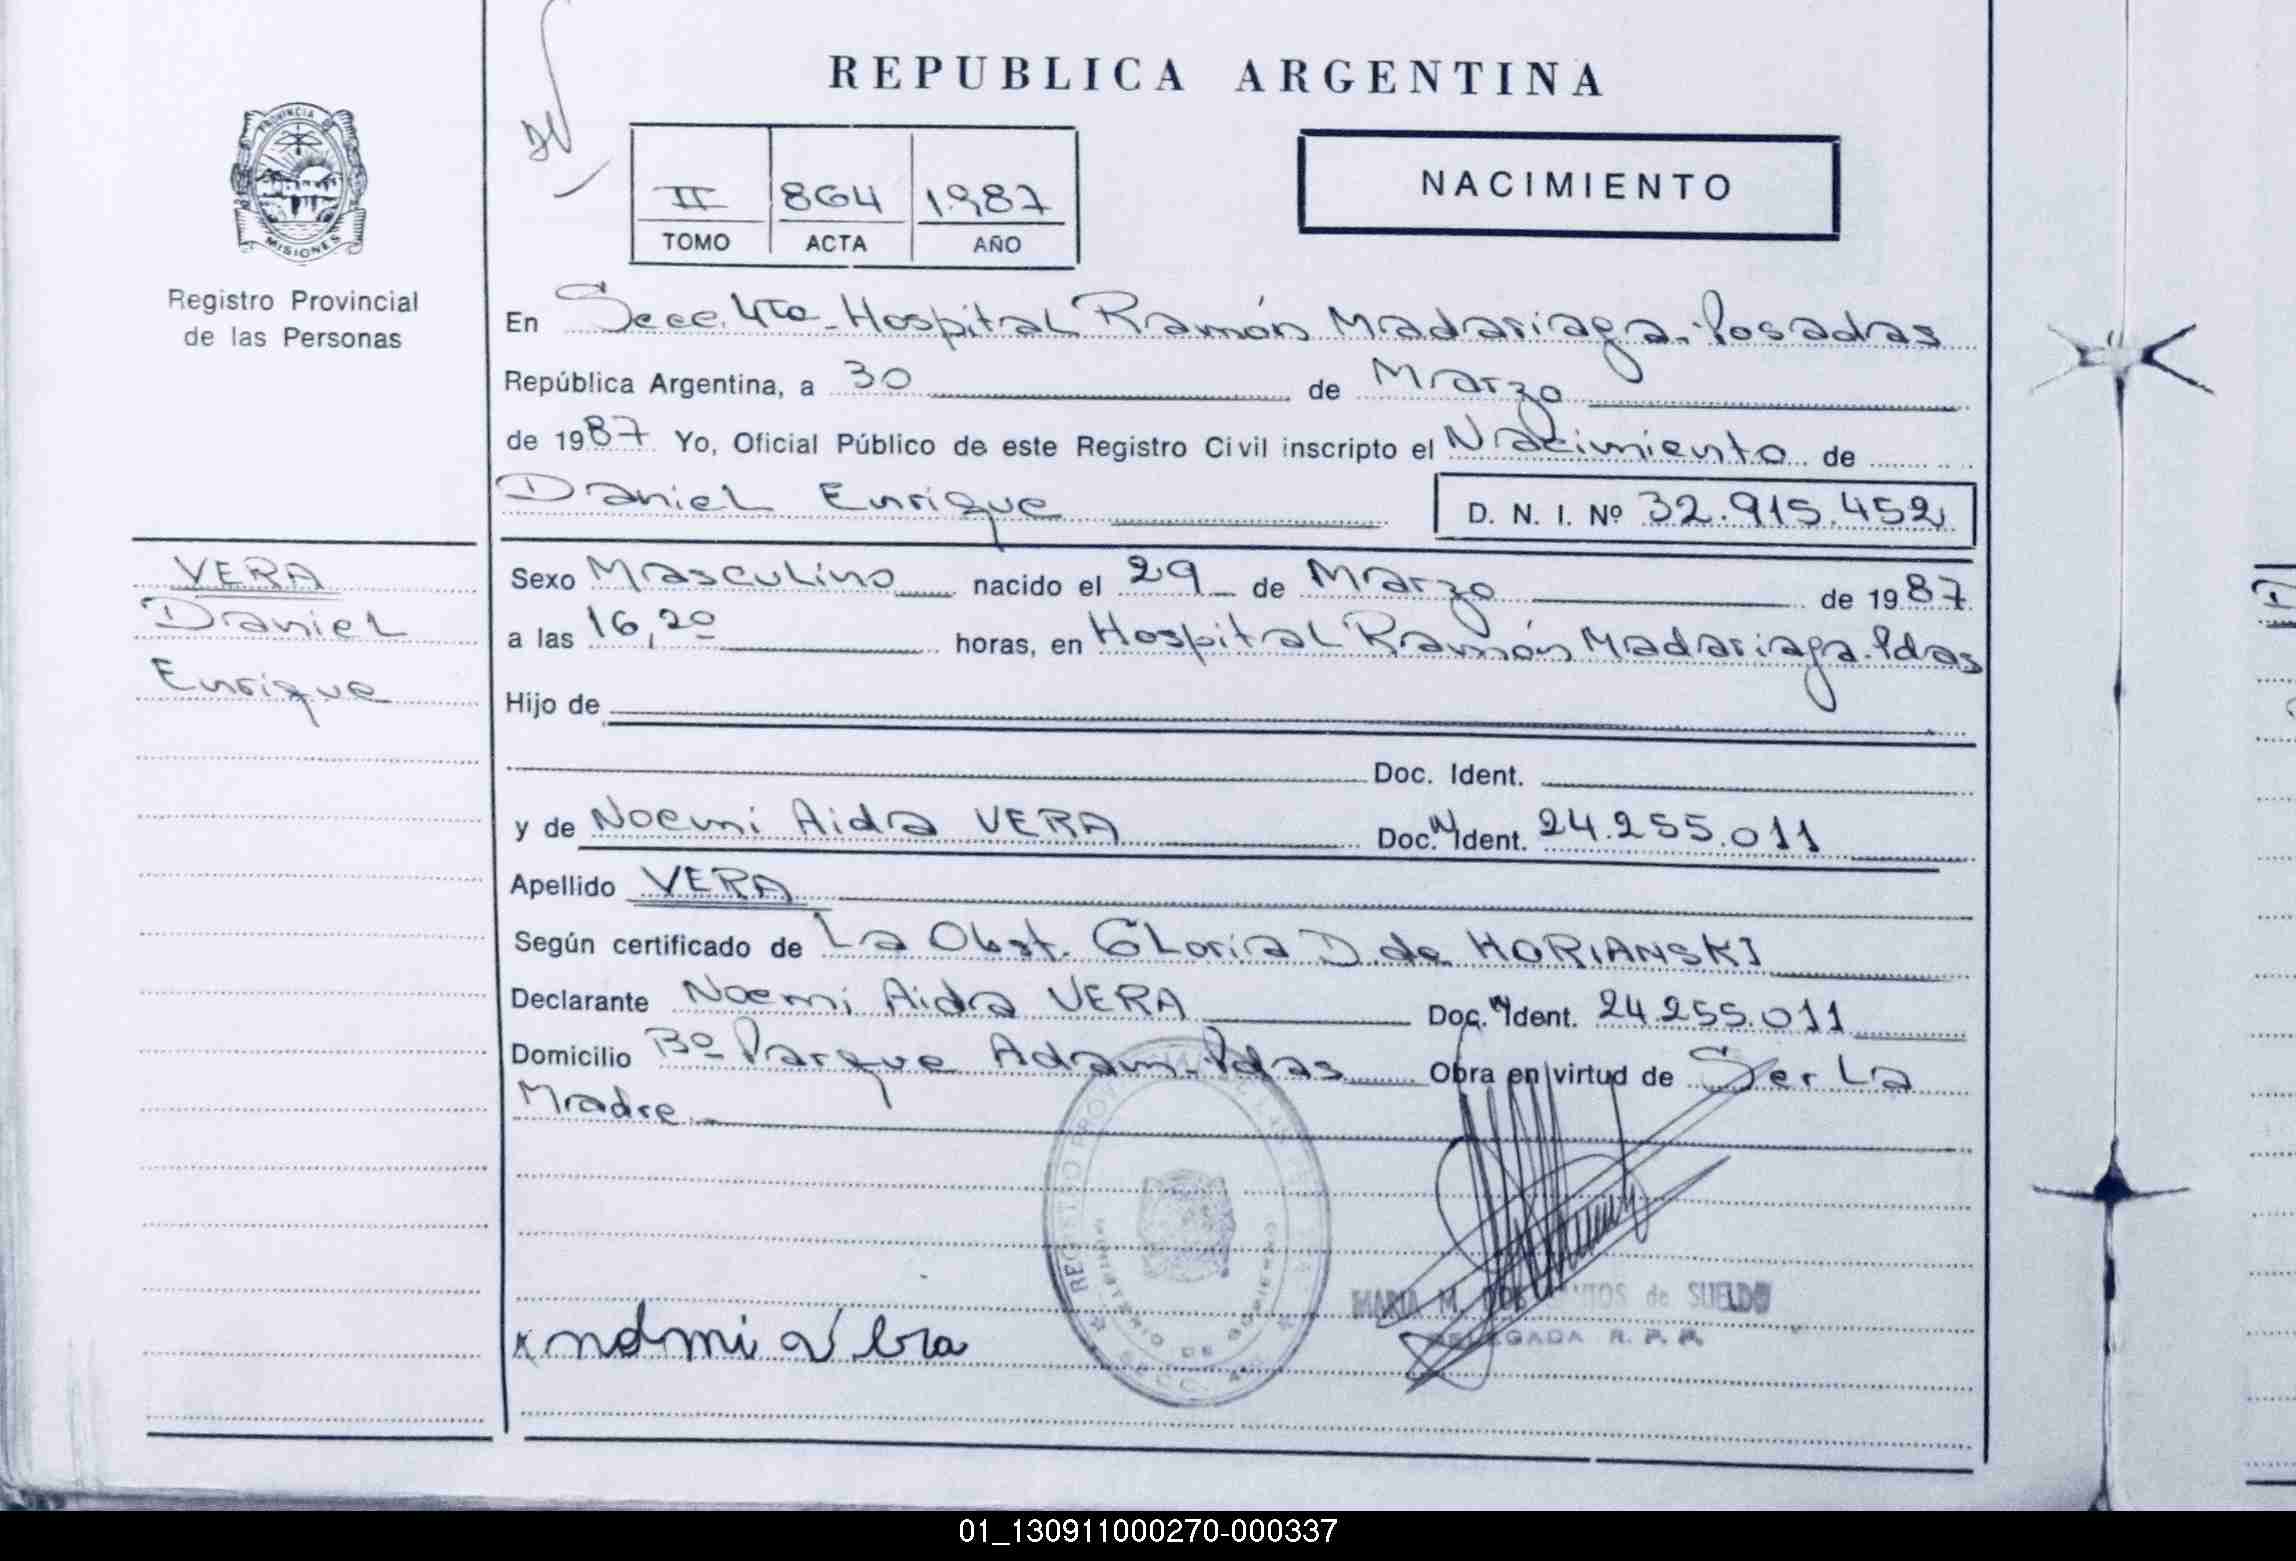 REPUBLICA ARGENTINA
PROVINCIA DE
MISIONES
Registro Provincial
de las Personas
II 864 1987
TOMO ACTA AÑO
NACIMIENTO
En Secc. 4ta - Hospital Ramón Madariaga - Posadas
República Argentina, a 30 de Marzo
de 1987 Yo, Oficial Público de este Registro Civil inscripto el Nacimiento de
Daniel Enrique D. N. I. Nº 32.915.452
VERA
Daniel
Enrique
Sexo Masculino nacido el 29 de Marzo de 1987
a las 16,20 horas, en Hospital Ramón Madariaga. Pdas
Hijo de
Doc. Ident.
y de Noemi Aida VERA Doc. N Ident. 24.255.011
Apellido VERA
Según certificado de La Obst. Gloria D. de HORIANSKI
Declarante Noemi Aida VERA Doc. N Ident. 24.255.011
Domicilio Bº Parque Adam - Pdas Obra en virtud de Ser La
Madre.
REGISTRO PROV
MINISTERIO DE GOBIERNO
SECC. 4ª
MARIA M. DOS SANTOS de SUELDO
DELEGADA R. P. P.
Vera
01_130911000270-000337